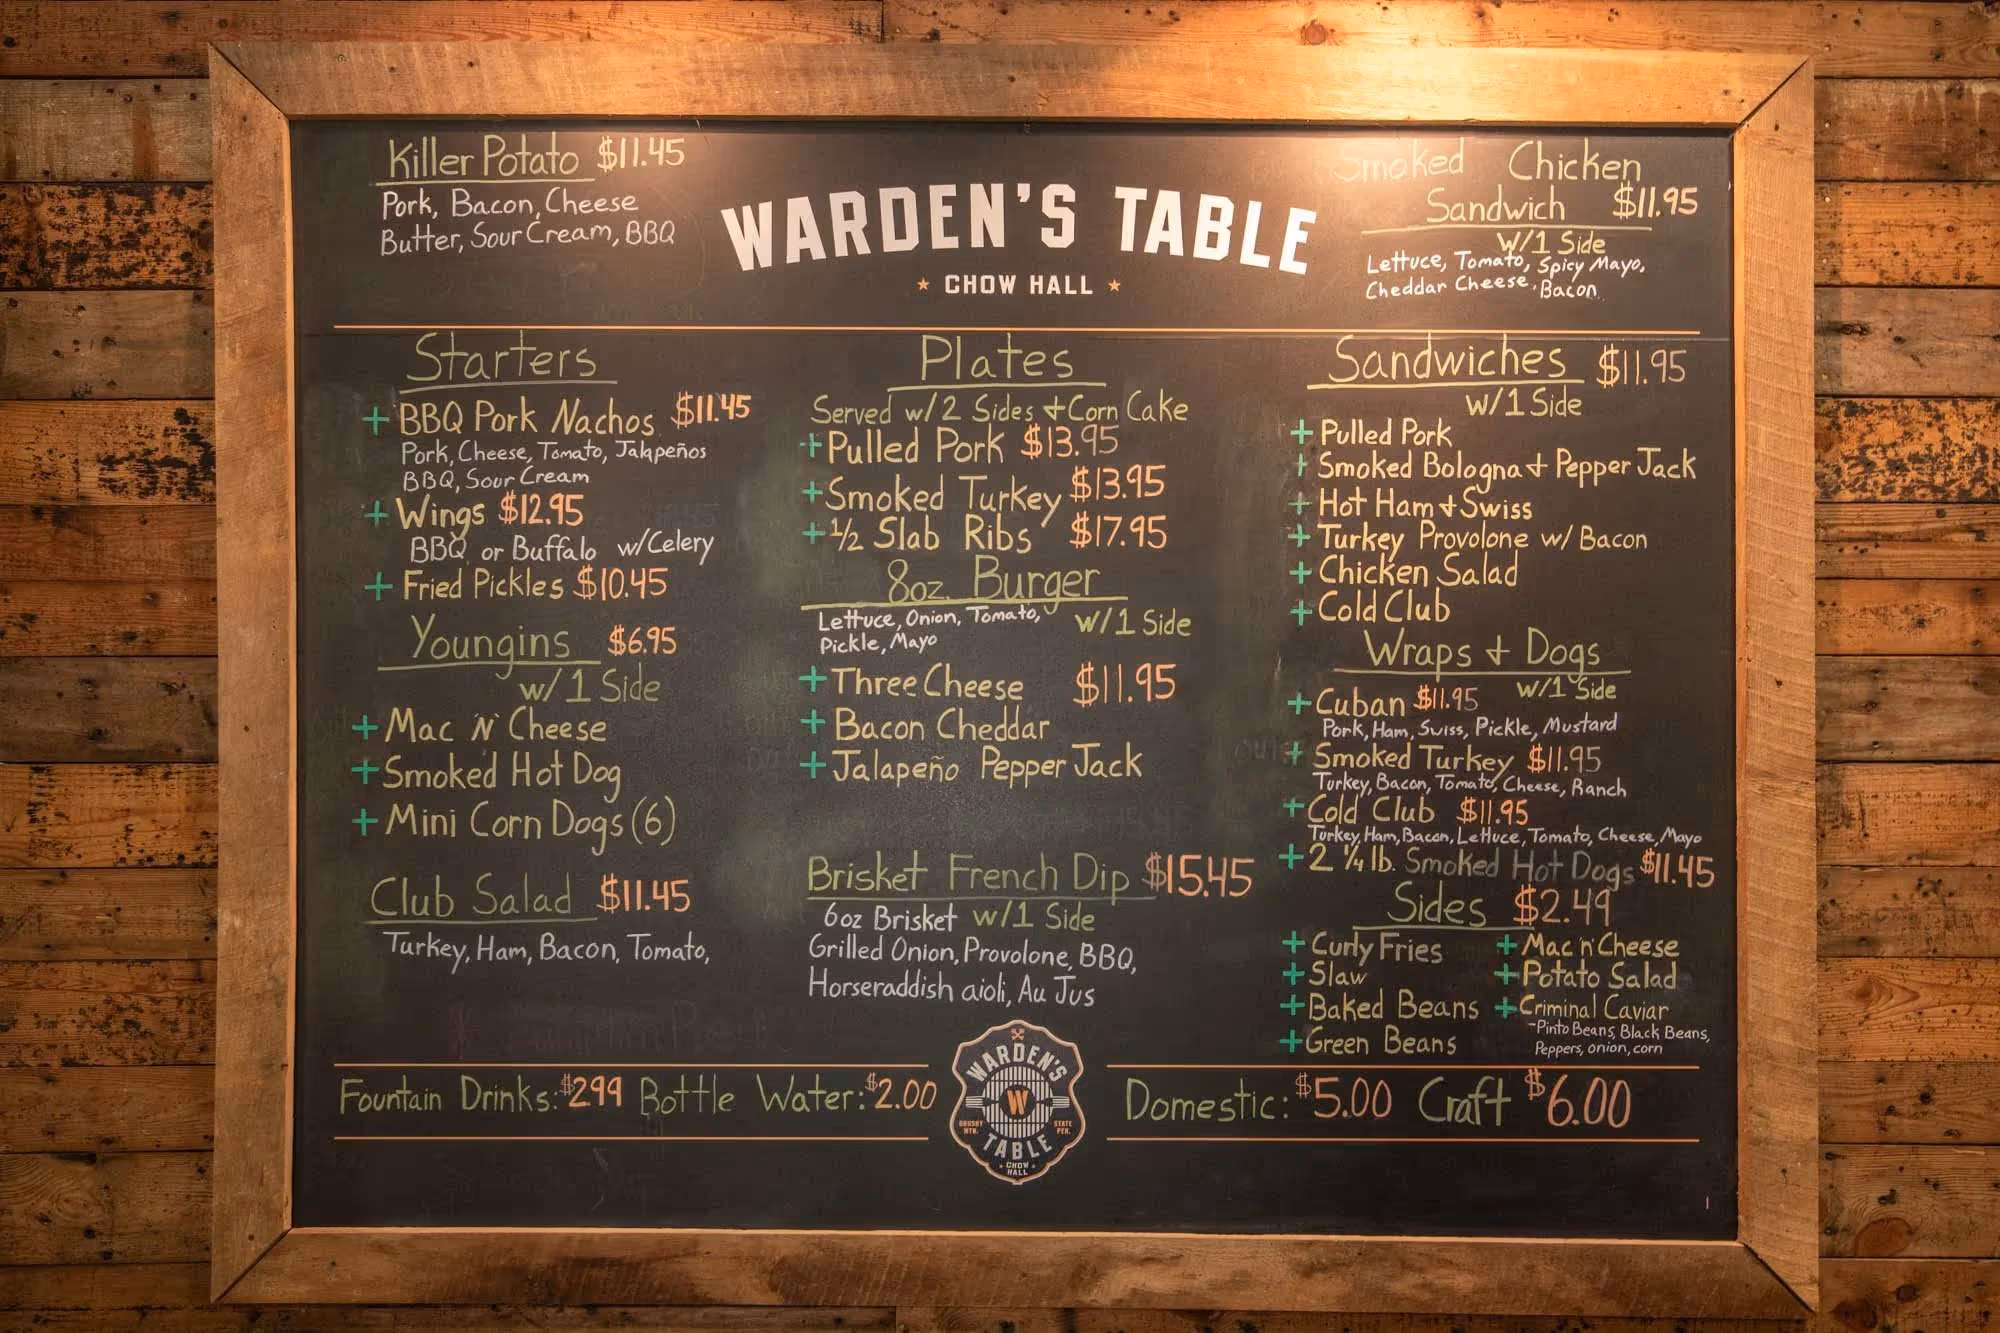 Killer Potato $11.45
Pork, Bacon, Cheese
Butter, Sour Cream, BBQ
WARDEN'S TABLE
CHOW HALL
Smoked Chicken
Sandwich $11.95
W/1 Side
Lettuce, Tomato, Spicy Mayo,
Cheddar Cheese, Bacon
Starters
+ BBQ Pork Nachos $11.45
Pork, Cheese, Tomato, Jalapeños
BBQ, Sour Cream
+ Wings $12.95
BBQ or Buffalo w/Celery
+ Fried Pickles $10.45
Youngins $6.95
w/ 1 Side
+ Mac 'N' Cheese
+ Smoked Hot Dog
+ Mini Corn Dogs (6)
Club Salad $11.45
Turkey, Ham, Bacon, Tomato,
Plates
Served w/2 Sides + Corn Cake
+ Pulled Pork $13.95
+ Smoked Turkey $13.95
+ ½ Slab Ribs $17.95
8oz. Burger
Lettuce, Onion, Tomato, w/1 Side
Pickle, Mayo
+ Three Cheese $11.95
+ Bacon Cheddar
+ Jalapeño Pepper Jack
Brisket French Dip $15.45
6oz Brisket w/1 Side
Grilled Onion, Provolone, BBQ,
Horseraddish aioli, Au Jus
Sandwiches $11.95
w/1 Side
+ Pulled Pork
+ Smoked Bologna + Pepper Jack
+ Hot Ham + Swiss
+ Turkey Provolone w/ Bacon
+ Chicken Salad
+ Cold Club
Wraps + Dogs
+ Cuban $11.95 w/1 Side
Pork, Ham, Swiss, Pickle, Mustard
+ Smoked Turkey $11.95
Turkey, Bacon, Tomato, Cheese, Ranch
+ Cold Club $11.95
Turkey, Ham, Bacon, Lettuce, Tomato, Cheese, Mayo
+ 2 ¼ lb. Smoked Hot Dogs $11.45
Sides $2.49
+ Curly Fries + Mac n' Cheese
+ Slaw + Potato Salad
+ Baked Beans + Criminal Caviar
-Pinto Beans, Black Beans,
+ Green Beans Peppers, onion, corn
Fountain Drinks: $2.99 Bottle Water: $2.00
Domestic: $5.00 Craft $6.00
WARDEN'S
W
BRUSHY MTN. STATE PEN.
TABLE
CHOW
HALL